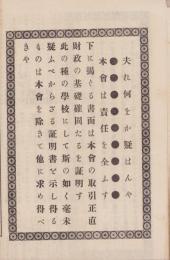 夫れ何をか疑はんや
本會は責任を全ふす
下に揭ぐる書面は本會の取引正直
財政の基礎確固たるを証明す
此の種の學校にして斯の如く毫末
疑ふべからざる証明書で示し得る
ものは本會を除きて他に求め得べ
きや